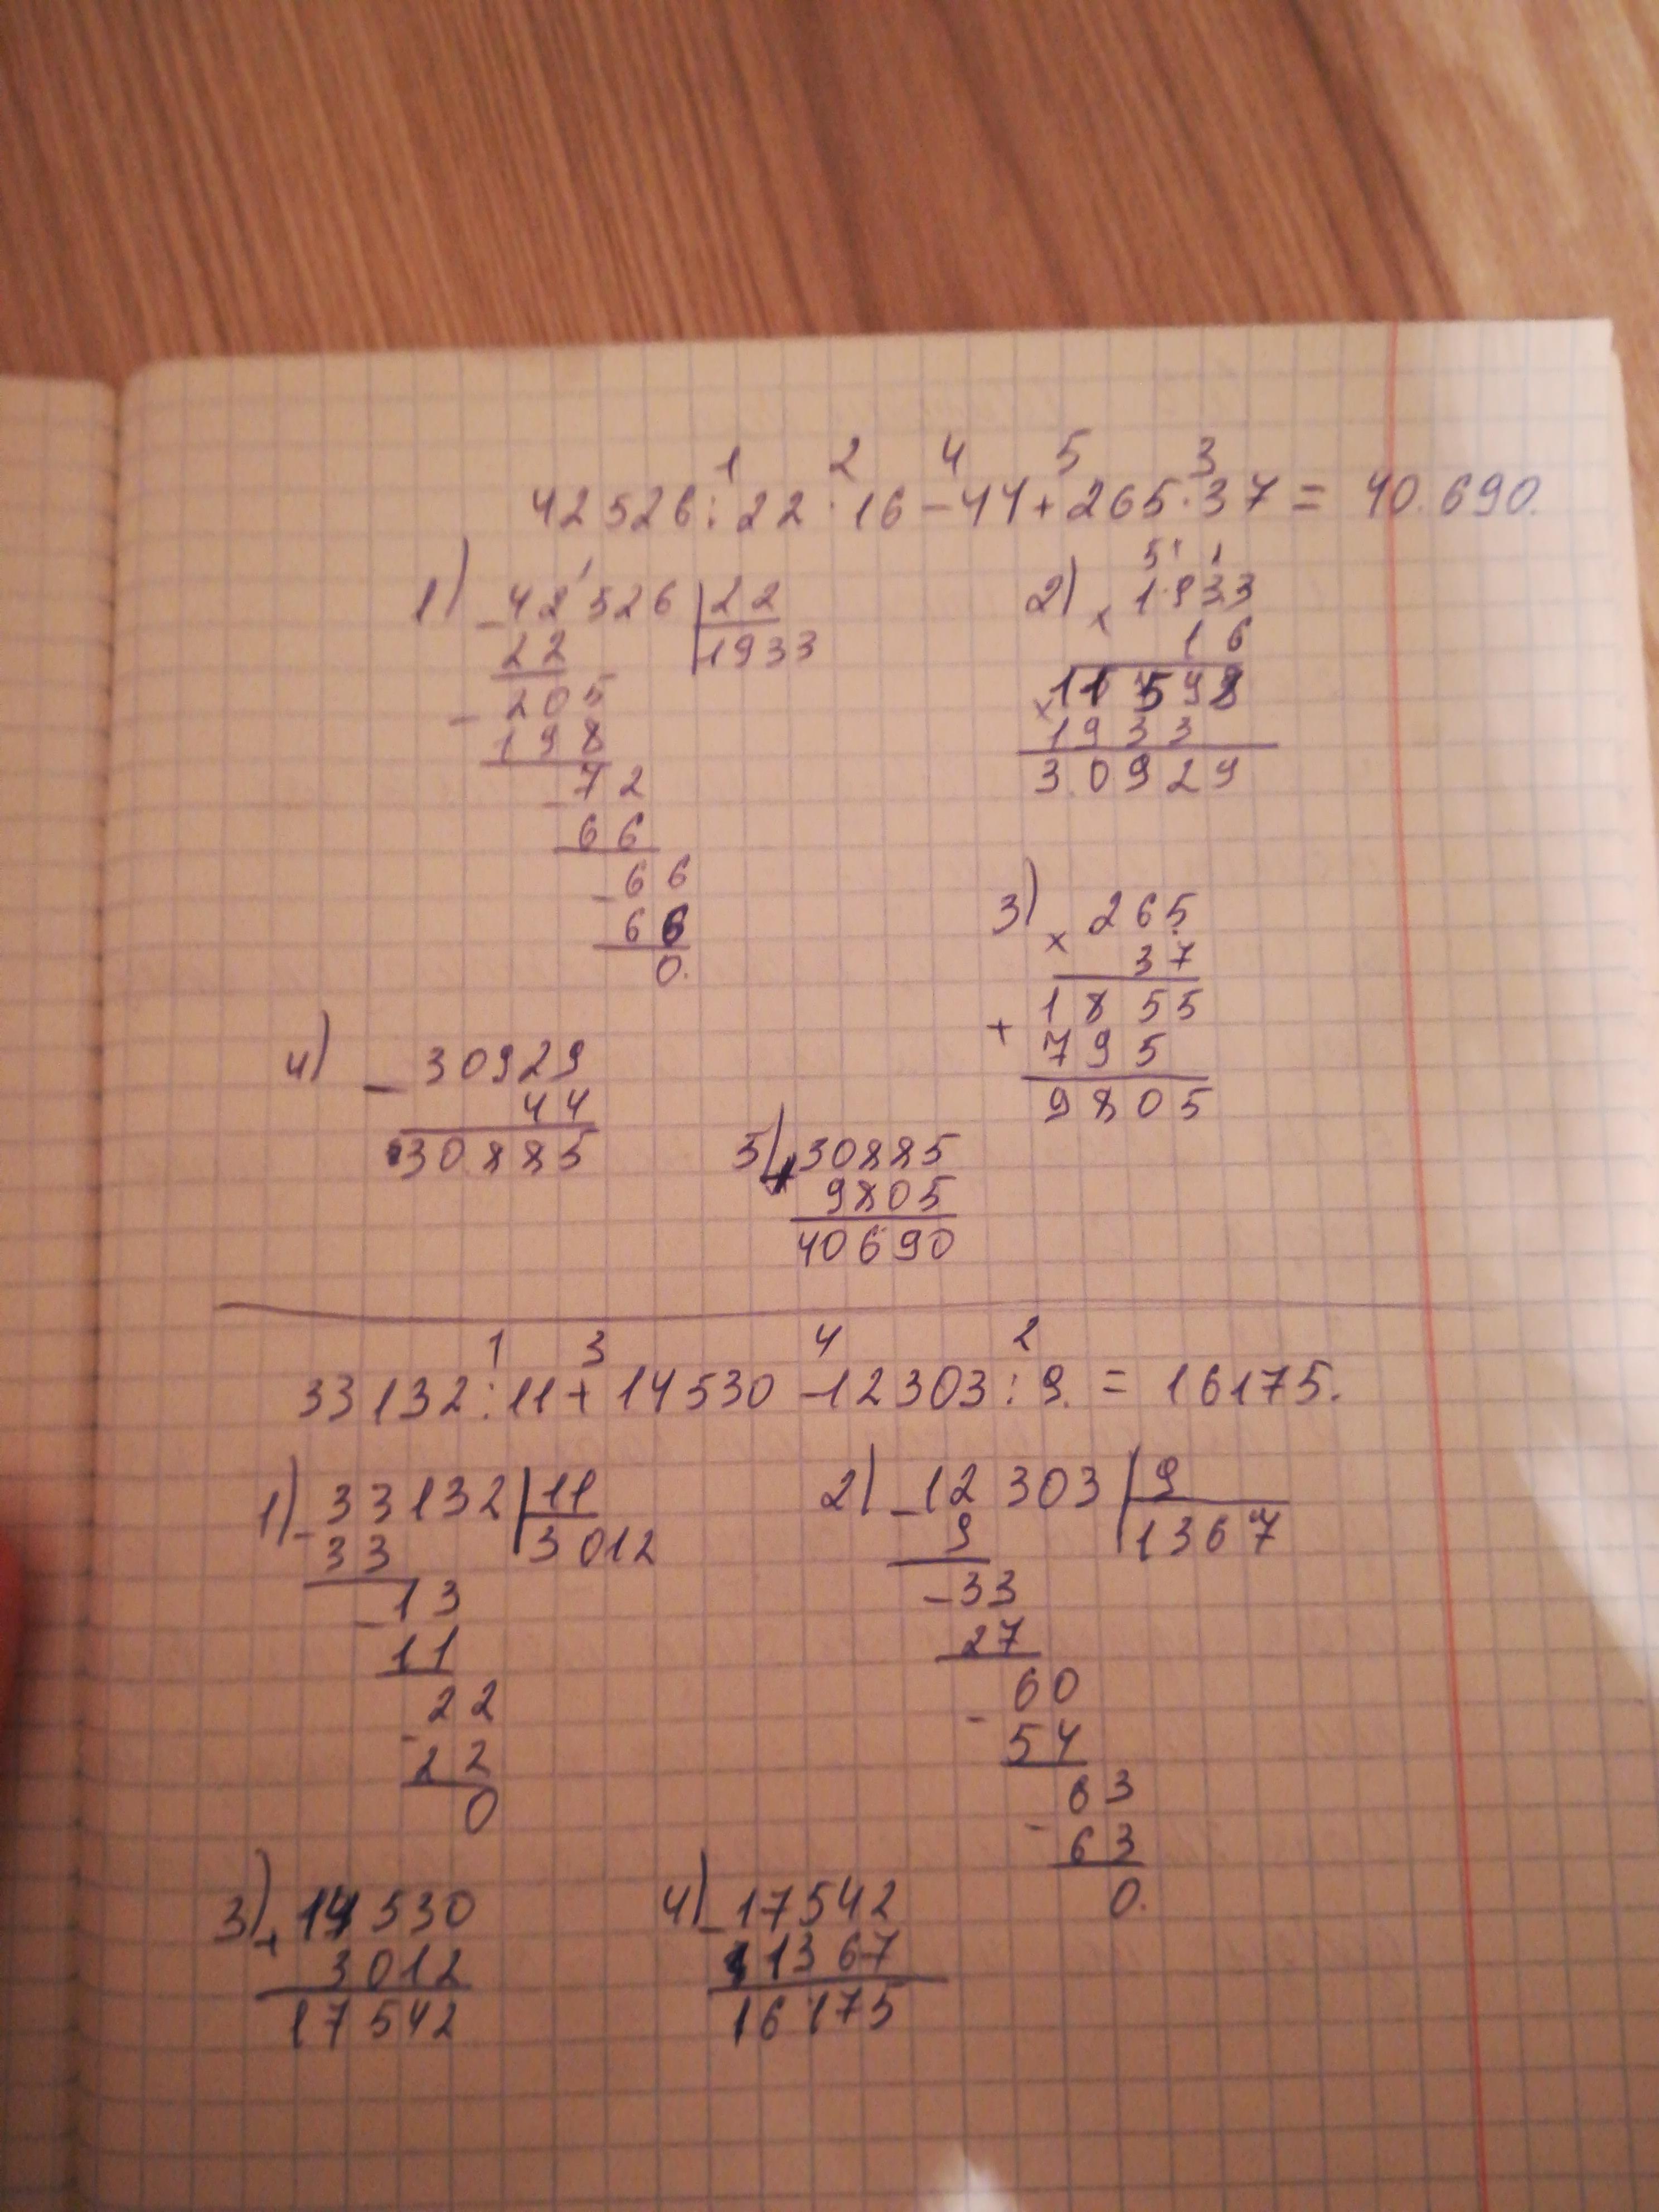 1 2 4 5 3
42526:22·16-44+265·37= 40.690.
1) -42'526 |22
22 1933
-205
198
-72
66
-66
66
0.
2) × 1933
5 1 1
16
11598
×1933
30929
3) × 265
37
1855
+ 795
9805
4) -30929
44
30885
5) +30885
9805
40690
1 3 4 2
33132:11+14530-12303:9. = 16175.
1) -33132 |11
33 3012
-13
11
-22
22
0
2) -12303 |9
9 1367
-33
27
-60
54
-63
63
0.
3) +14530
3012
17542
4) -17542
1367
16175